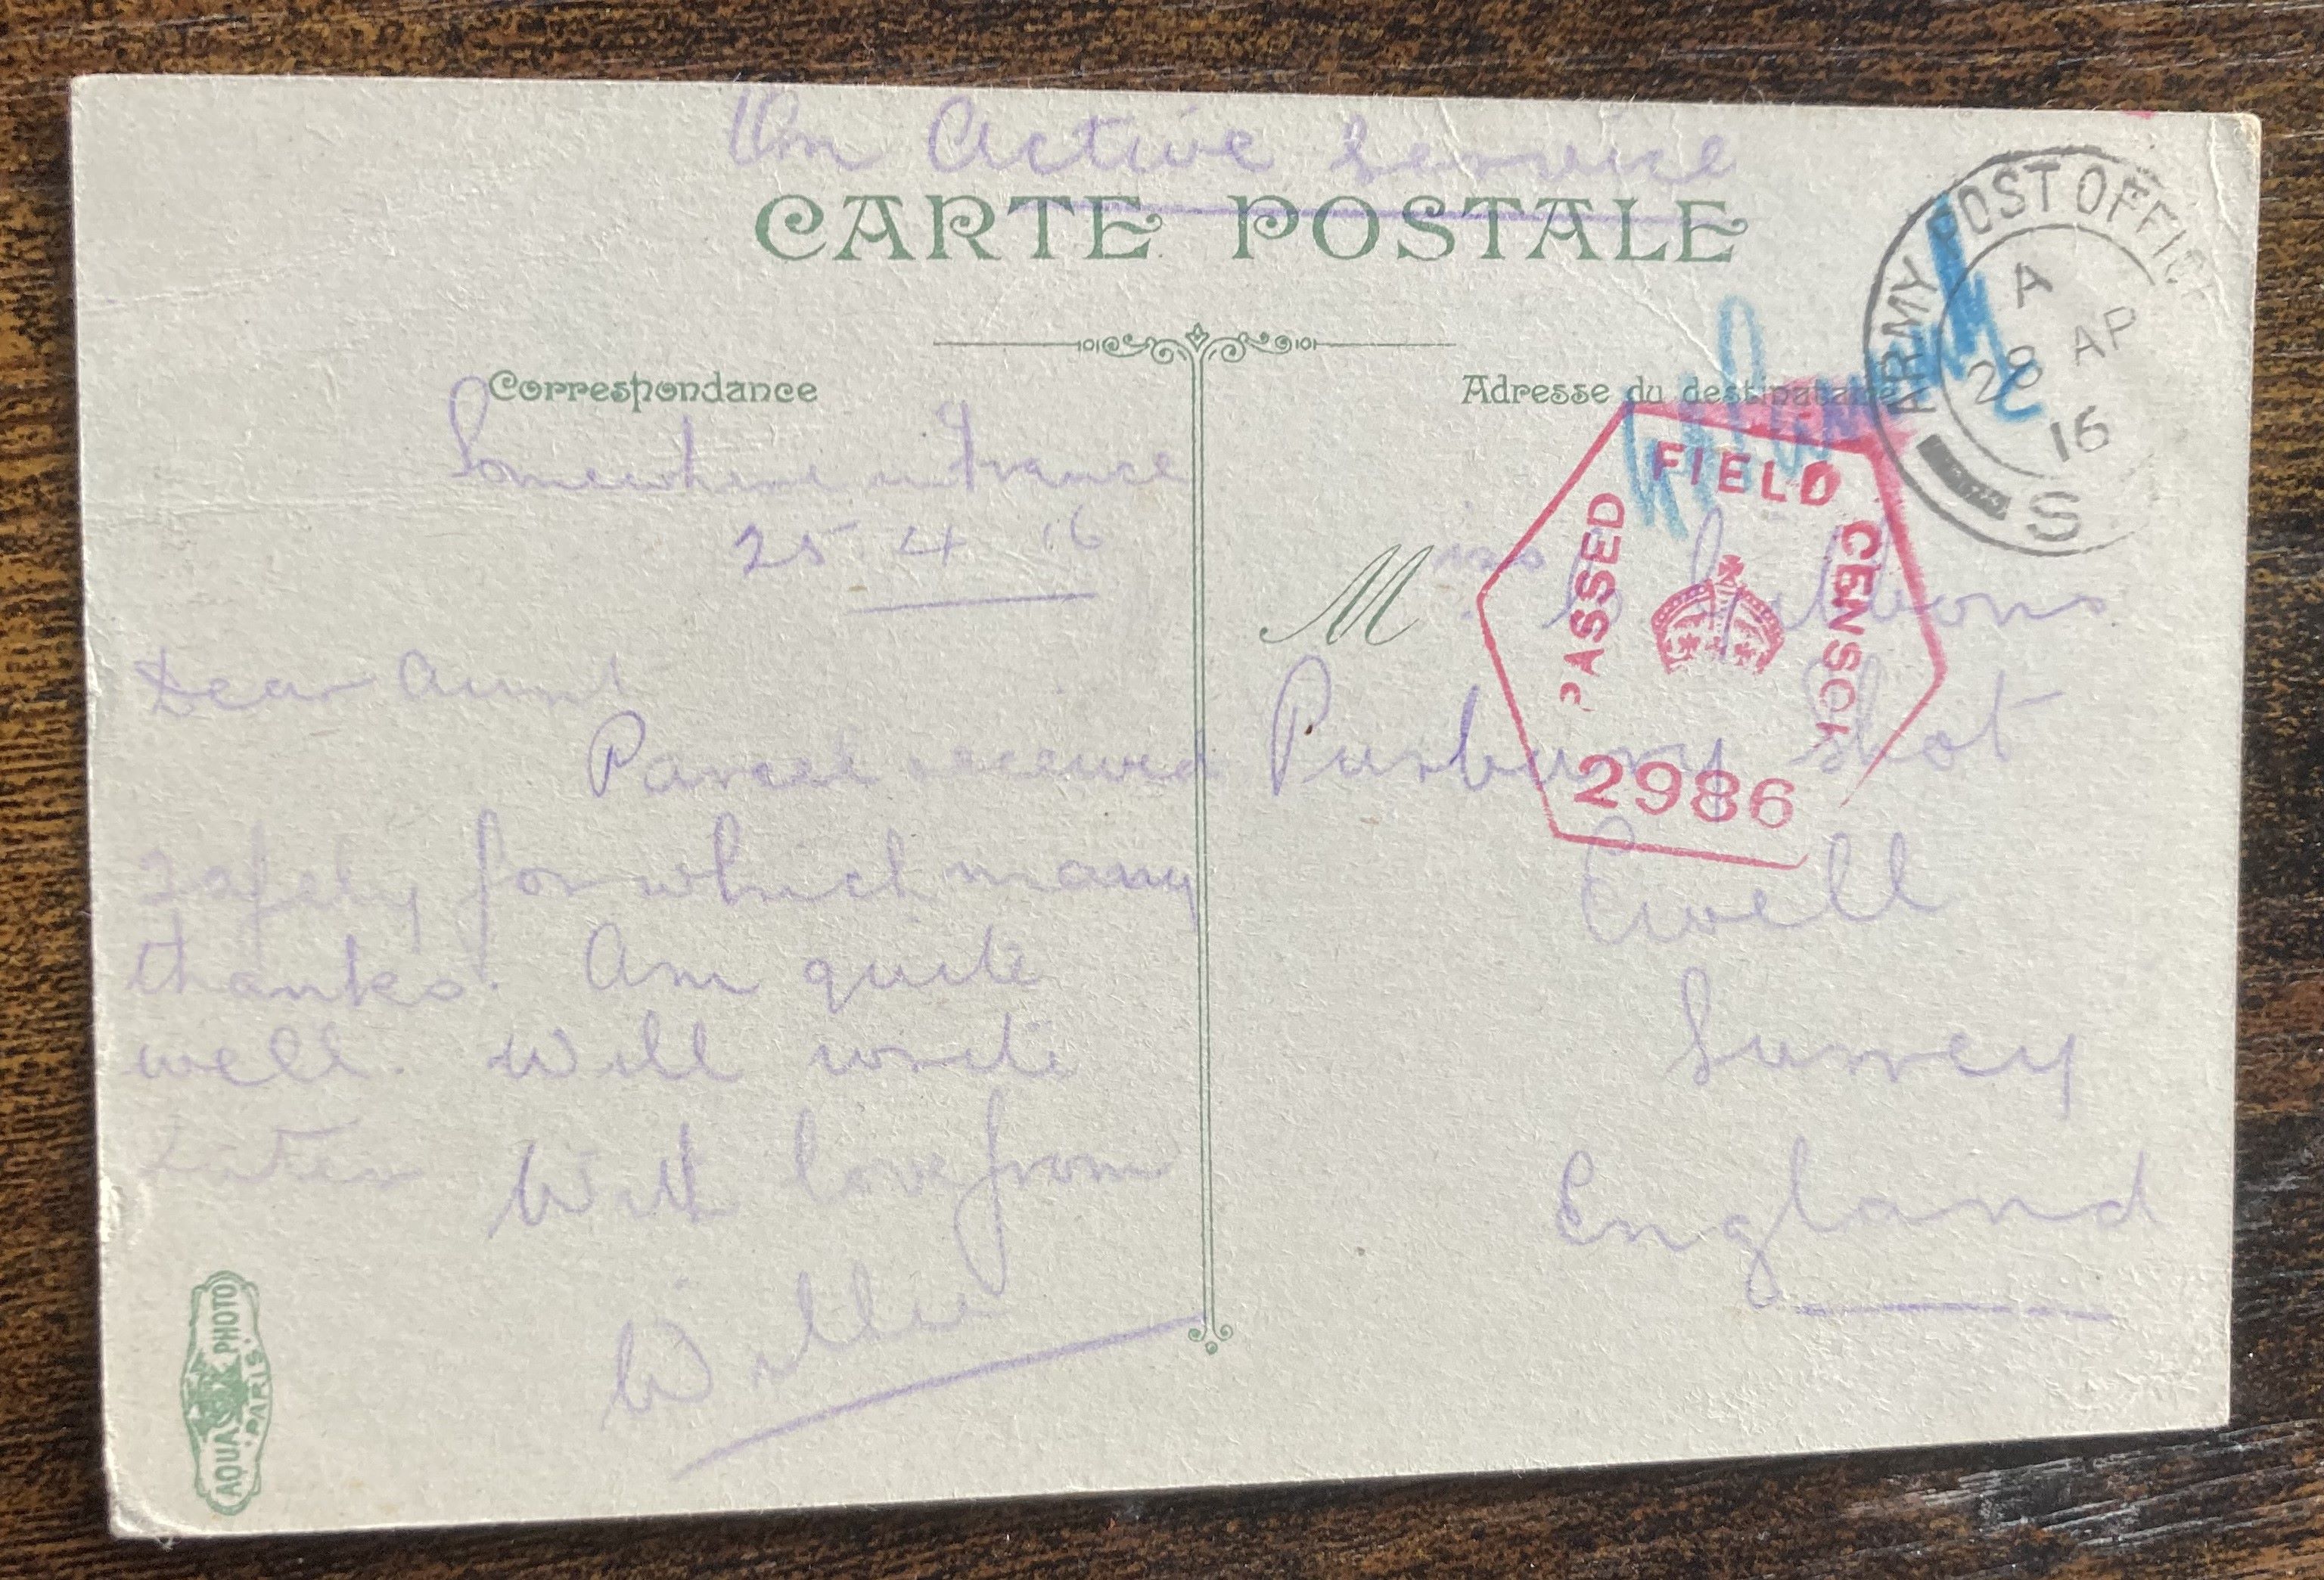 On Active Service
CARTE POSTALE
Correspondance
Somewhere in France
25 4 16
Dear Aunt
Parcel received
safely for which many
thanks. Am quite
well. Will write
Later With love from
Willie
AQUA PHOTO
PARIS
Adresse du destinataire
Miss
Shot
Ewell
Surrey
England
PASSED FIELD CENSOR
2986
ARMY POST OFFICE
A
28 AP
16
S